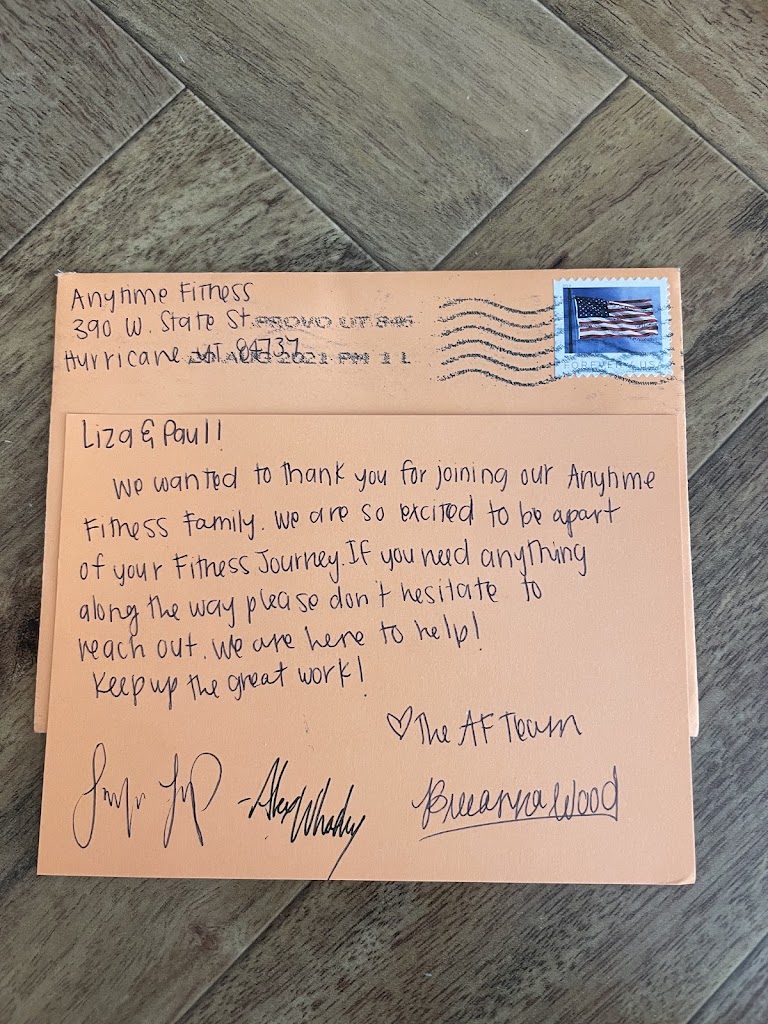 Anytime Fitness
390 W. State St.
Hurricane UT 84737
PROVO UT 846
20 AUG 2021 PM 1 L
FOREVER USA
Liza & Paul!
We wanted to thank you for joining our Anytime
Fitness Family. We are so excited to be apart
of your Fitness Journey. If you need anything
along the way please don't hesitate to
reach out. We are here to help!
Keep up the great work!
♡ The AF Team
-Alex
Breeanna Wood